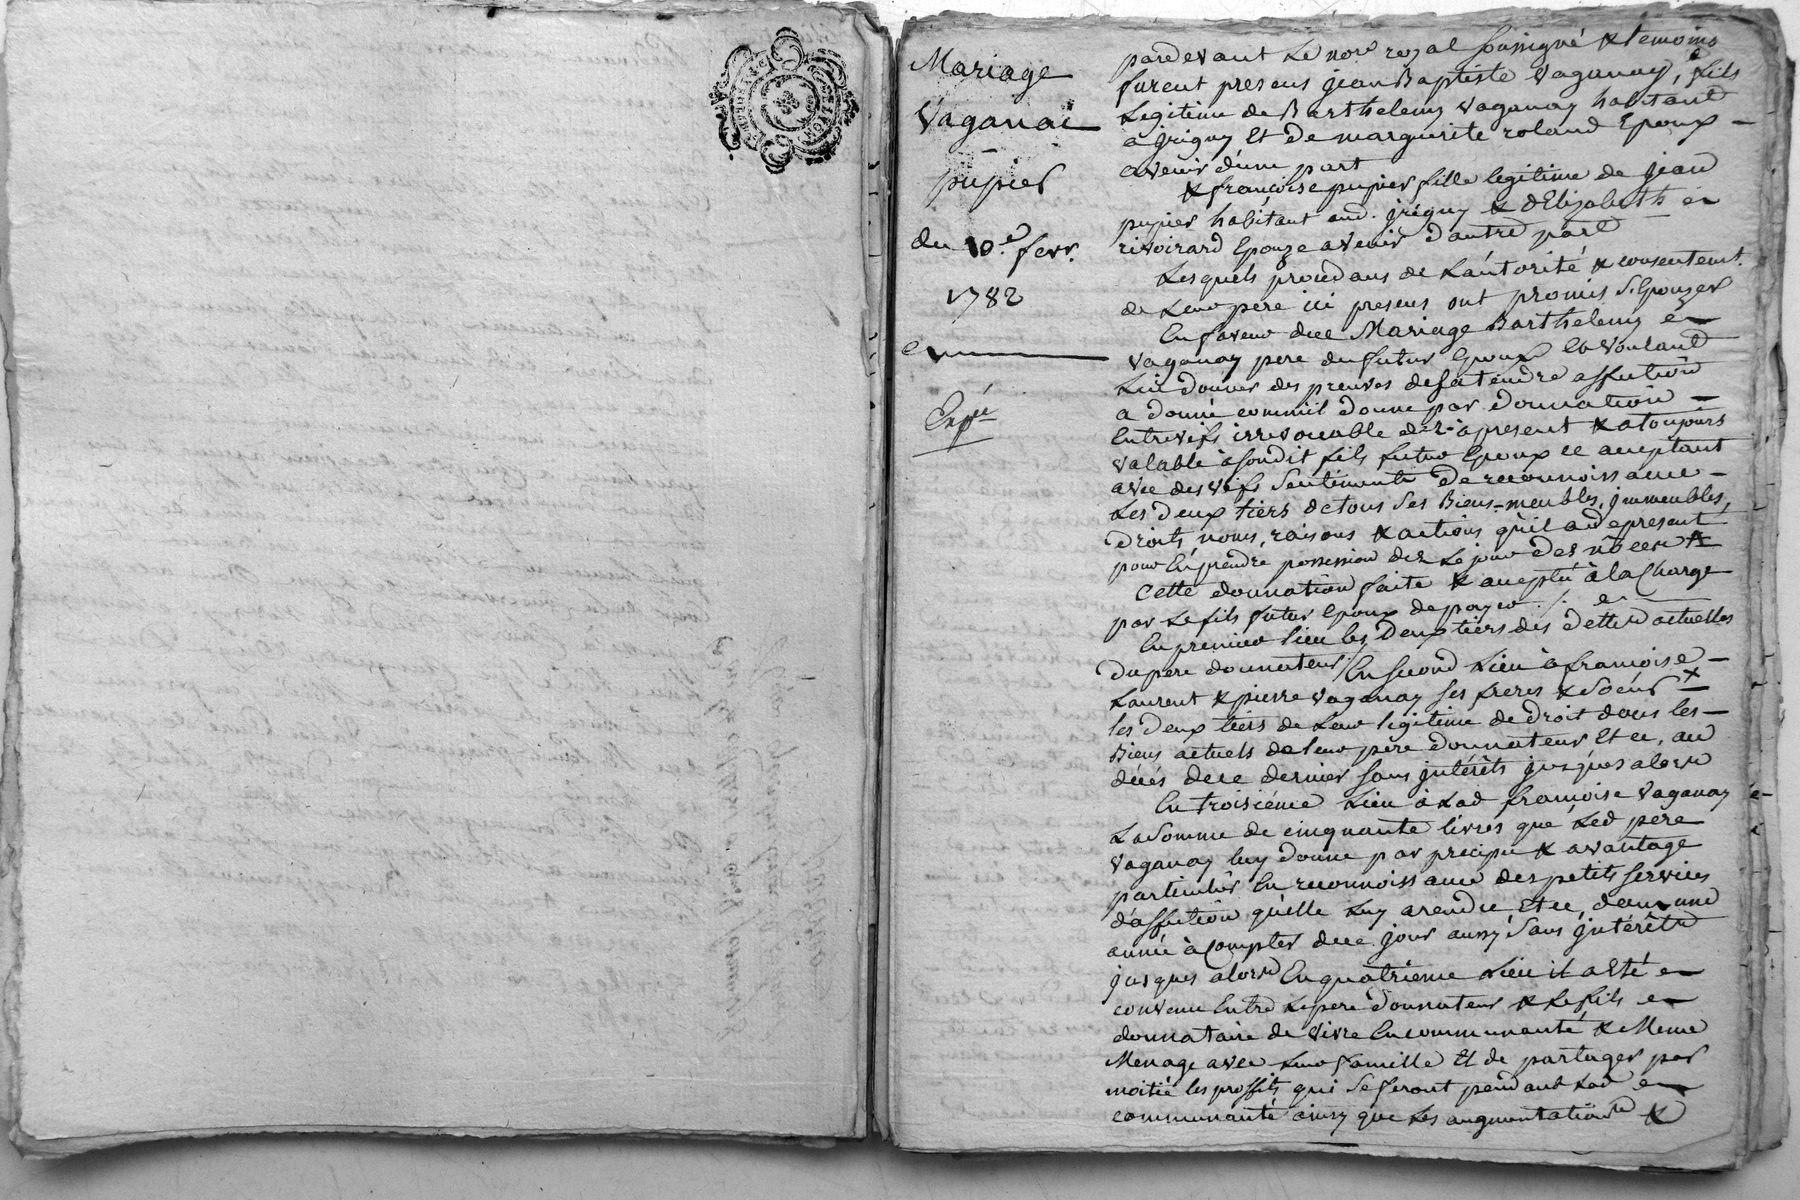 Mariage
Vaganai
pupier
du 10.e fevr.
1782
Expé
pardevant Le nore royal soussigné & temoins
furent presens jean Baptiste Vaganay, fils
Legitime de Barthelemy Vaganay habitant
a grigny Et de marguerite roland Epoux
avenir d'une part
& françoise pupier fille legitime de jean
pupier habitant aud. grigny & d'Elizabeth
rivoirard Epouze avenir d'autre part
Lesquels procedans de L'autorité & consentemt.
de Leur pere ici presens ont promis S'Epouzer
En faveur duce Mariage Barthelemy
Vaganay pere du futur Epoux Et voulant
Lui donner des preuves de sa tendre affection
a donné commil donne par donnation
Entrevifs irrevocable dez-àpresent & atoujours
valable à sondit fils futur Epoux ce acceptant
avec des vifs Sentiments De reconnoissance
Les Deux tiers de tous Ses Biens-meubles, jmmeubles,
Droits, noms, raisons & actions qu'il a depresent
pour En prendre possession dez Le jour des nôces
Cette donnation faite & acceptée à la Charge
par Le fils futur Epoux de payer
En premier lieu les Deux tiers des dettes actuelles
du pere donnateur / En second Lieu à françoise
Laurent & pierre Vaganay ses freres & Soeur
les Deux tiers de Leur legitime de Droit dans les
Biens actuels de leur pere Donnateur Et ce, au
décés de ce dernier sans jntérêts jusques alors
En troisiéme Lieu à Lad françoise Vaganay
La Somme de cinquante livres que Led pere
Vaganay luy Donne par precipu & avantage
particulier En reconnoissance des petits Services
d'affection qu'elle Luy a rendu Et ce, dans une
année à Compter duce jour aussy Sans jntérêts
jusques alors En quatriéme Lieu il a Eté
convenu Entre Le pere Donnateur & Le fils
donnataire de Vivre En communauté & Meme
Menage avec Leur famille Et de partager par
moitié les proffits qui Se feront pendant Lad
communauté ainsy que Les augmentations &